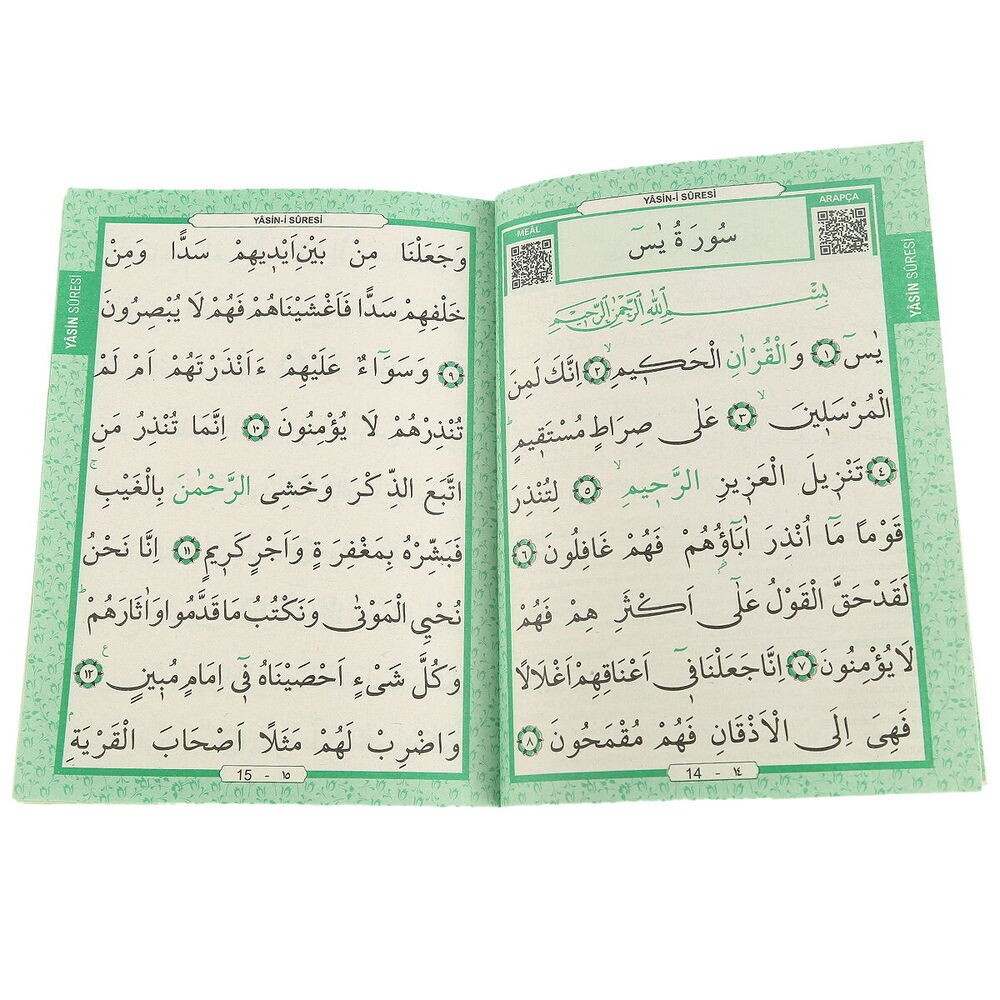 YÂSİN-İ SÛRESİ
MEÂL
ARAPÇA
سُورَةُ يٰسٓ
YÂSİN SÛRESİ
بِسْمِ اللهِ الرَّحْمٰنِ الرَّحِيمِ
يٰسٓ ۝١ وَالْقُرْاٰنِ الْحَكِيمِ ۝٢ اِنَّكَ لَمِنَ
الْمُرْسَلِينَ ۝٣ عَلٰى صِرَاطٍ مُسْتَقِيمٍ
۝٤ تَنْزِيلَ الْعَزِيزِ الرَّحِيمِ ۝٥ لِتُنْذِرَ
قَوْمًا مَٓا اُنْذِرَ اٰبَٓاؤُهُمْ فَهُمْ غَافِلُونَ ۝٦
لَقَدْ حَقَّ الْقَوْلُ عَلٰٓى اَكْثَرِهِمْ فَهُمْ
لَا يُؤْمِنُونَ ۝٧ اِنَّا جَعَلْنَا فِٓي اَعْنَاقِهِمْ اَغْلَالًا
فَهِىَ اِلَى الْاَذْقَانِ فَهُمْ مُقْمَحُونَ ۝٨
14 - ١٤
YÂSİN-İ SÛRESİ
YÂSİN SÛRESİ
وَجَعَلْنَا مِنْ بَيْنِ اَيْدِيهِمْ سَدًّا وَمِنْ
خَلْفِهِمْ سَدًّا فَاَغْشَيْنَاهُمْ فَهُمْ لَا يُبْصِرُونَ
۝٩ وَسَوَٓاءٌ عَلَيْهِمْ ءَاَنْذَرْتَهُمْ اَمْ لَمْ
تُنْذِرْهُمْ لَا يُؤْمِنُونَ ۝١٠ اِنَّمَا تُنْذِرُ مَنِ
اتَّبَعَ الذِّكْرَ وَخَشِىَ الرَّحْمٰنَ بِالْغَيْبِ
فَبَشِّرْهُ بِمَغْفِرَةٍ وَاَجْرٍ كَرِيمٍ ۝١١ اِنَّا نَحْنُ
نُحْيِي الْمَوْتٰى وَنَكْتُبُ مَا قَدَّمُوا وَاٰثَارَهُمْ
وَكُلَّ شَىْءٍ اَحْصَيْنَاهُ فِٓى اِمَامٍ مُبِينٍ ۝١٢
وَاضْرِبْ لَهُمْ مَثَلًا اَصْحَابَ الْقَرْيَةِ
15 - ١٥